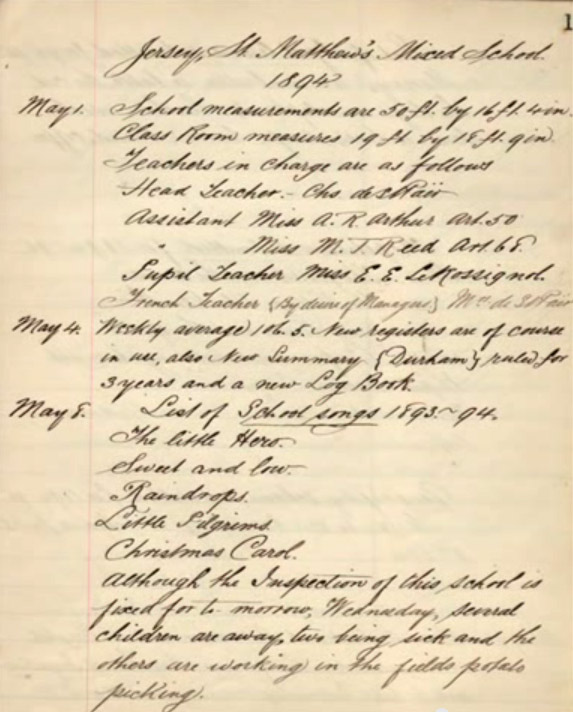 1
Jersey, St. Matthew's Mixed School.
1894
May 1. School measurements are 50 ft. by 16 ft. 4 in.
Class Room measures 19 ft by 18 ft. 9 in
Teachers in charge are as follows
Head Teacher. - Chs. de St Paër
Assistant Miss A. R. Arthur Art. 50
" Miss M. T. Reed Art. 68.
Pupil Teacher Miss E. E. LeRossignol.
French Teacher {By desire of Managers} de St Paër
May 4. Weekly average 106.5. New registers are of course
in use, also New Summary {Durham} ruled for
3 years and a new Log Book.
May 8. List of School songs 1893-94.
The little Hero.
Sweet and low.
Raindrops.
Little Pilgrims.
Christmas Carol.
Although the Inspection of this school is
fixed for to-morrow, Wednesday, several
children are away, two being sick and the
others are working in the fields potato
picking.